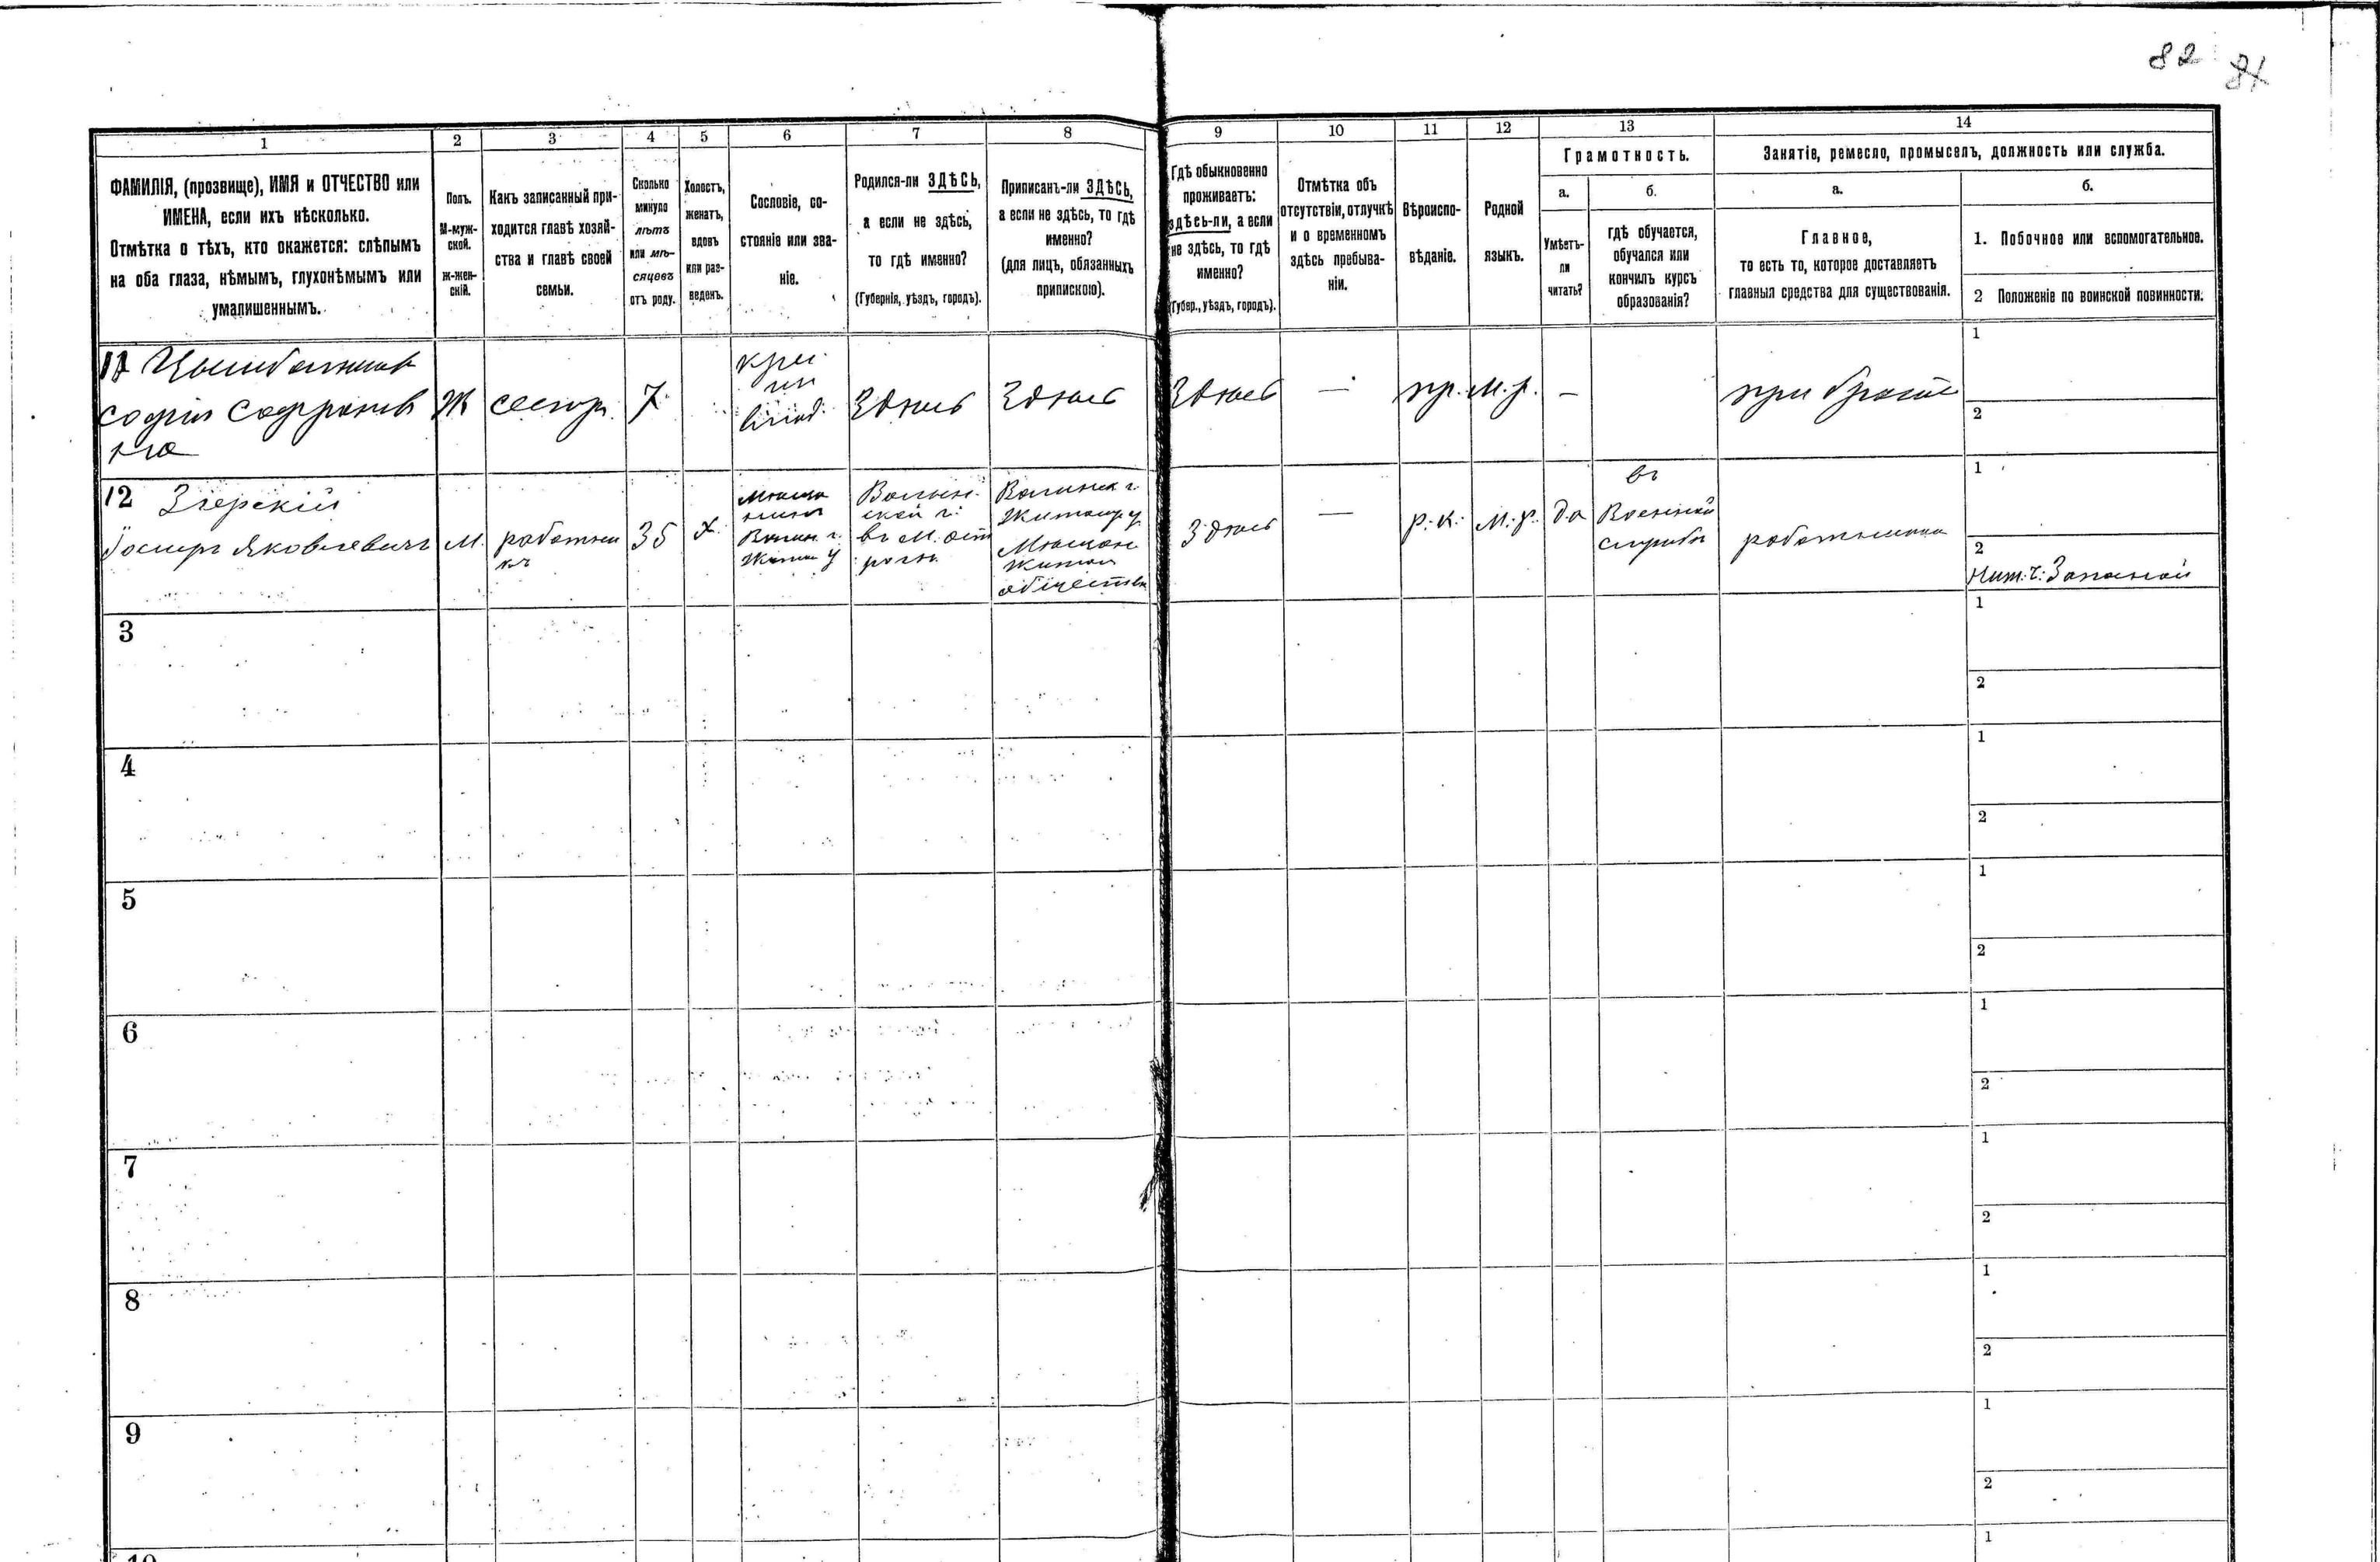 82 81
1 2 3 4 5 6 7 8 9 10 11 12 13 14
ФАМИЛІЯ, (прозвище), ИМЯ и ОТЧЕСТВО или
ИМЕНА, если ихъ нѣсколько.
Отмѣтка о тѣхъ, кто окажется: слѣпымъ
на оба глаза, нѣмымъ, глухонѣмымъ или
умалишеннымъ.
Полъ.
М-муж-
ской.
ж-жен-
скій.
Какъ записанный при-
ходится главѣ хозяй-
ства и главѣ своей
семьи.
Сколько
минуло
лѣтъ
или мѣ-
сяцевъ
отъ роду.
Холостъ,
женатъ,
вдовъ
или раз-
веденъ.
Сословіе, со-
стояніе или зва-
ніе.
Родился-ли ЗДѢСЬ,
а если не здѣсь,
то гдѣ именно?
(Губернія, уѣздъ, городъ).
Приписанъ-ли ЗДѢСЬ,
а если не здѣсь, то гдѣ
именно?
(для лицъ, обязанныхъ
припискою).
Гдѣ обыкновенно
проживаетъ:
здѣсь-ли, а если
не здѣсь, то гдѣ
именно?
(Губер., уѣздъ, городъ).
Отмѣтка объ
отсутствіи, отлучкѣ
и о временномъ
здѣсь пребыва-
ніи.
Вѣроиспо-
вѣданіе.
Родной
языкъ.
Грамотность.
а.
Умѣетъ-
ли
читать?
б.
гдѣ обучается,
обучался или
кончилъ курсъ
образованія?
Занятіе, ремесло, промыселъ, должность или служба.
а.
Главное,
то есть то, которое доставляетъ
главныя средства для существованія.
б.
1. Побочное или вспомогательное.
2 Положеніе по воинской повинности.
11
софія Софронов
на
Ж
сестра
7
крес
Здѣсь
Здѣсь
Здѣсь
—
пр.
М.р.
—
при братѣ
1
2
12 Згерскій
Іосифъ Яковлевичъ
М.
работни
къ
35
х.
Мѣща
нинъ
Волын. г.
Житом у
Волын.
ской г.
въ М. ост
рогѣ
Волынск г.
Житомір у
Мѣщан
Житом
обществѣ
Здѣсь
—
р.к.
М.р.
да
въ
Военной
службѣ
работникъ
1
2
Ниж. ч. Запасной
3
1
2
4
1
2
5
1
2
6
1
2
7
1
2
8
1
2
9
1
2
10
1